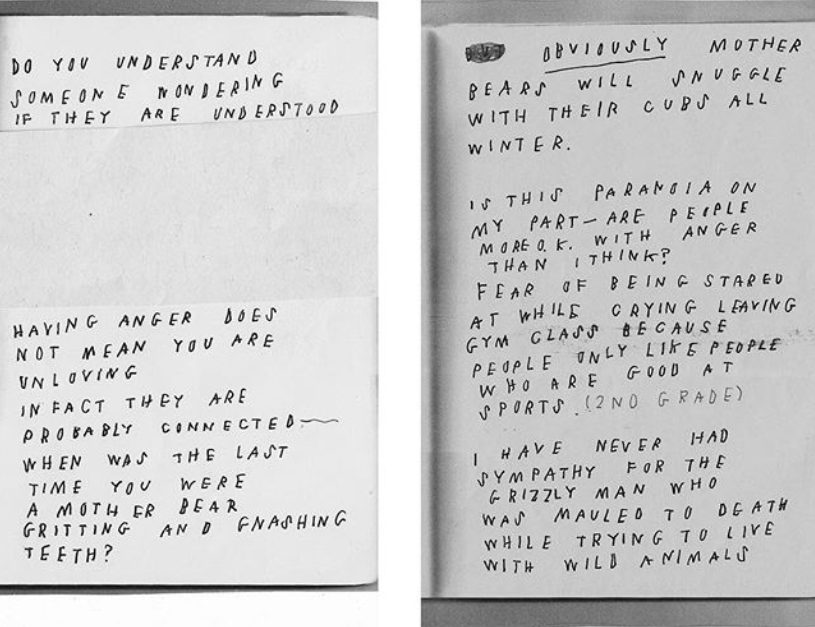 DO YOU UNDERSTAND
SOMEONE WONDERING
IF THEY ARE UNDERSTOOD
HAVING ANGER DOES
NOT MEAN YOU ARE
UNLOVING
IN FACT THEY ARE
PROBABLY CONNECTED—
WHEN WAS THE LAST
TIME YOU WERE
A MOTHER BEAR
GRITTING AND GNASHING
TEETH?
OBVIOUSLY MOTHER
BEARS WILL SNUGGLE
WITH THEIR CUBS ALL
WINTER.
IS THIS PARANOIA ON
MY PART—ARE PEOPLE
MORE O.K. WITH ANGER
THAN I THINK?
FEAR OF BEING STARED
AT WHILE CRYING LEAVING
GYM CLASS BECAUSE
PEOPLE ONLY LIKE PEOPLE
WHO ARE GOOD AT
SPORTS. (2ND GRADE)
I HAVE NEVER HAD
SYMPATHY FOR THE
GRIZZLY MAN WHO
WAS MAULED TO DEATH
WHILE TRYING TO LIVE
WITH WILD ANIMALS